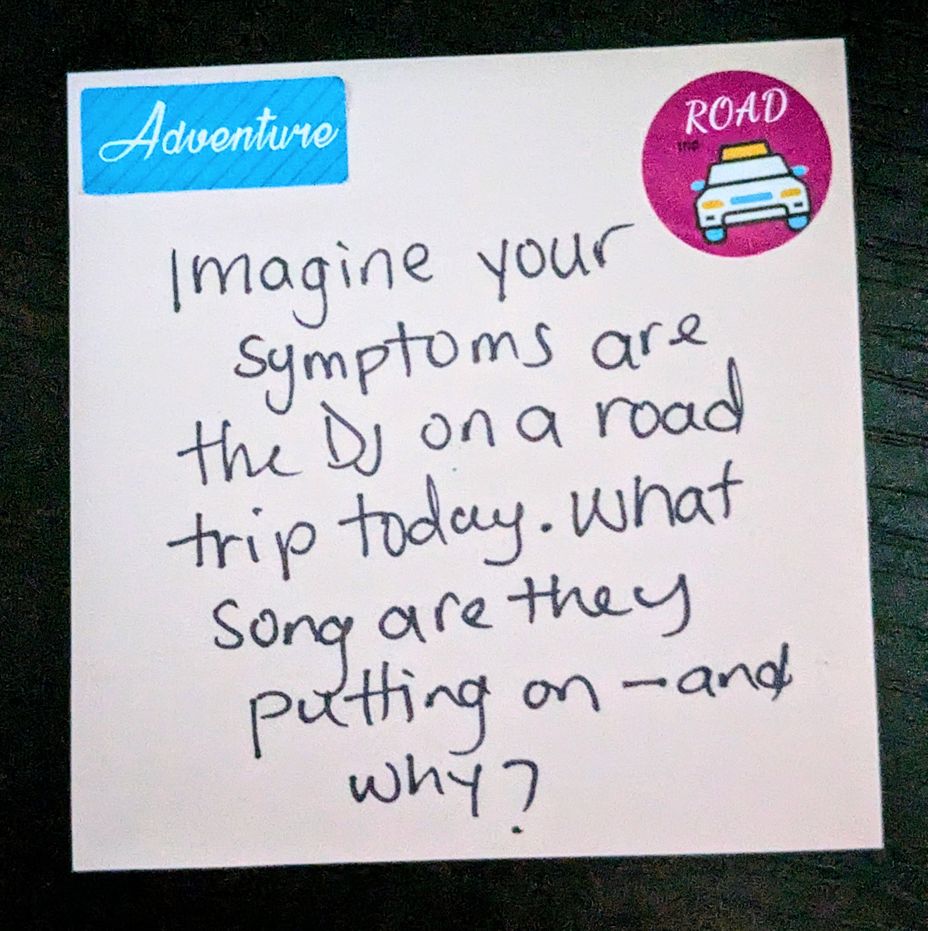 Adventure
ROAD
trip
Imagine your
symptoms are
the DJ on a road
trip today. What
song are they
putting on - and
why?